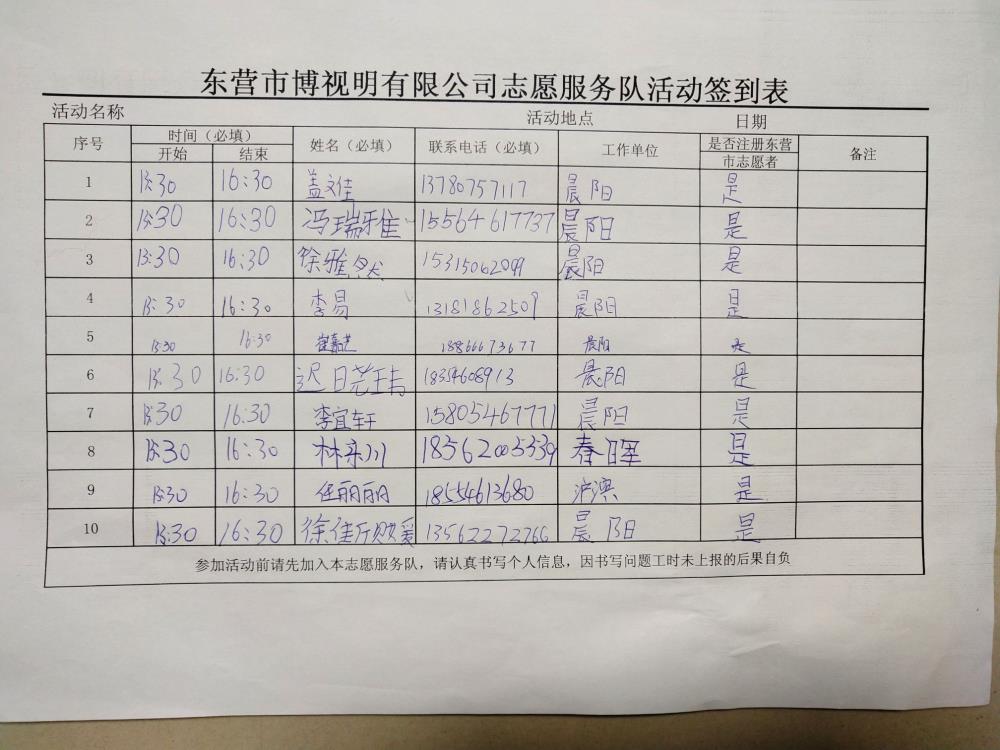 东营市博视明有限公司志愿服务队活动签到表
活动名称 活动地点 日期
序号 时间（必填） 姓名（必填） 联系电话（必填） 工作单位 是否注册东营市志愿者 备注
开始 结束
1 13:30 16:30 盖文佳 13780757117 晨阳 是
2 13:30 16:30 冯瑞雅 15564617737 晨阳 是
3 13:30 16:30 徐雅然 15315062099 晨阳 是
4 13:30 16:30 李易 13181862509 晨阳 是
5 13:30 16:30 18866673677 晨阳 是
6 13:30 16:30 迟日尧 18354608913 晨阳 是
7 13:30 16:30 李宜轩 15805467771 晨阳 是
8 13:30 16:30 林东川 18562005339 春晖 是
9 13:30 16:30 任丽丽 18554613680 沪澳 是
10 13:30 16:30 徐佳 13562272766 晨阳 是
参加活动前请先加入本志愿服务队，请认真书写个人信息，因书写问题工时未上报的后果自负